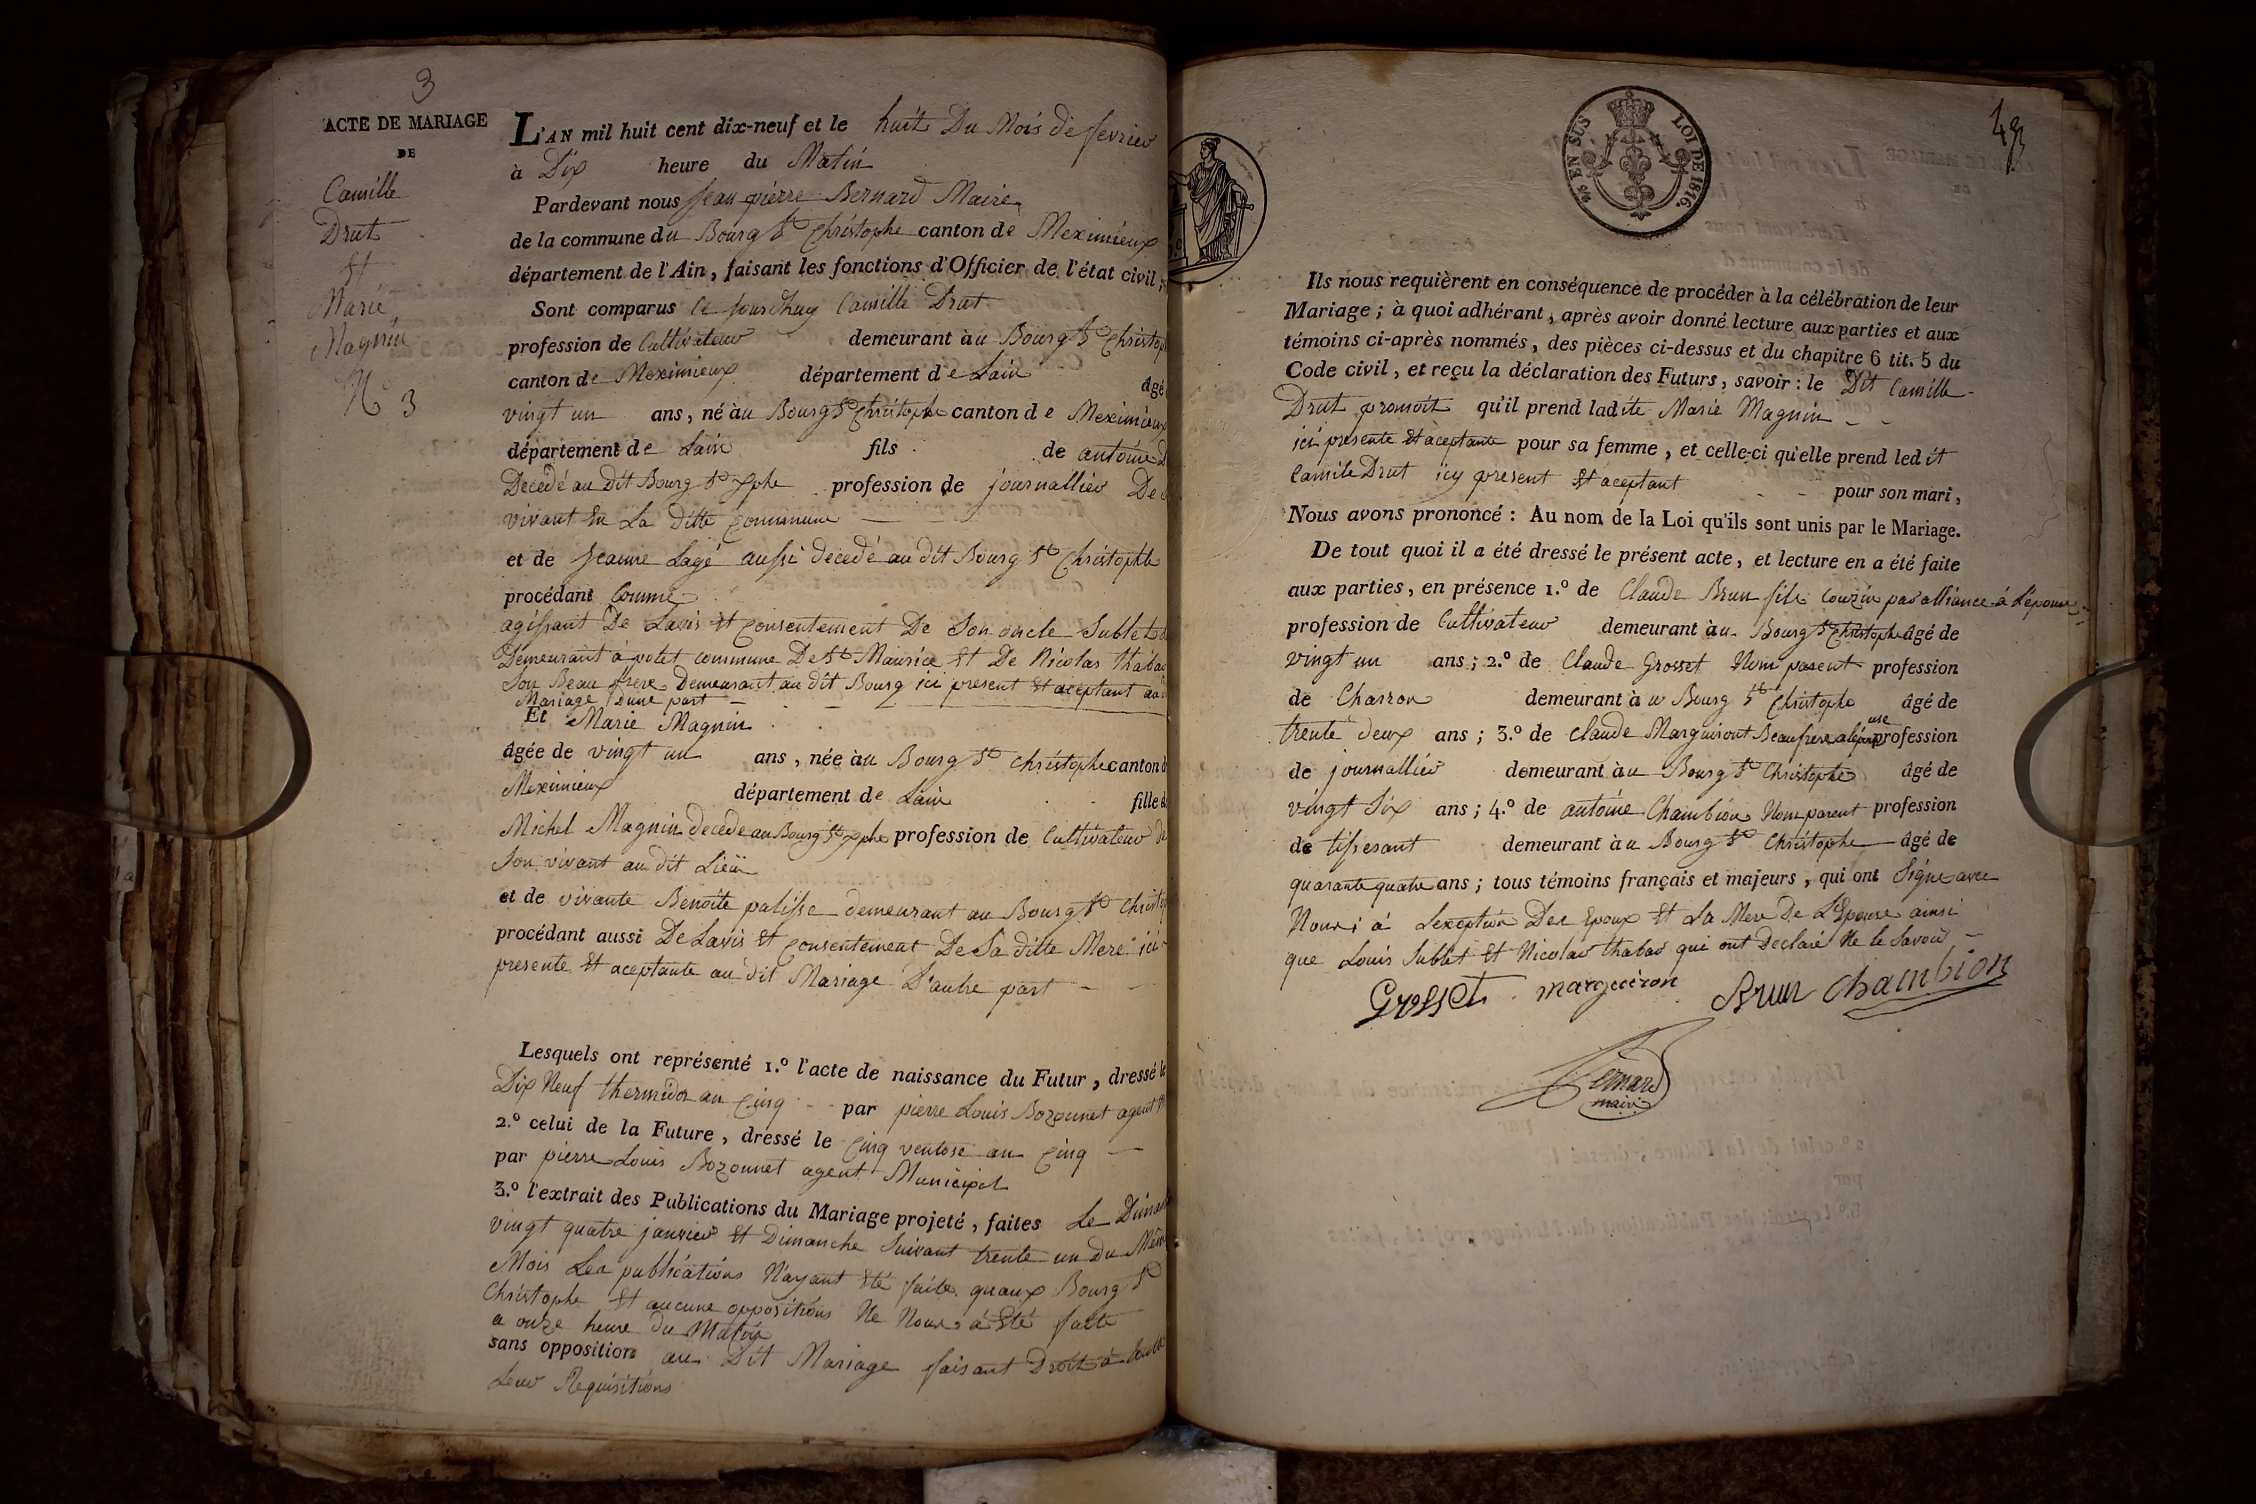 3
ACTE DE MARIAGE
DE
Camille
Drut
Et
Marie
Magnin
N° 3
L'AN mil huit cent dix-neuf et le huit Du Mois de fevrier
à Dix heure du Matin
Pardevant nous Jean pierre Bernard Maire
de la commune du Bourg St Christophe canton de Meximieux
département de l'Ain, faisant les fonctions d'Officier de l'état civil;
Sont comparus Ce Jourdhuy Camille Drut
profession de Cultivateur demeurant à u Bourg St Christop
canton de Meximieux département de Lain âgé
vingt un ans, né à u Bourg St Christophe canton de Meximieux
département de Lain fils de antoine D
Decedé au dit Bourg St Xphe profession de journallier De
vivant En La ditte Commune
et de Jeanne Lagé aussi decedé au dit Bourg St Christophe
procédant Comme
agissant De Lavis Et Consentement De Son oncle Sublet
Demeurant à polet commune De St Maurice Et De Nicolas thabar
Son Beau frere Demeurant au dit Bourg ici present Et aceptant au
Mariage Dune part
Et Marie Magnin
âgée de vingt un ans, née à u Bourg St christophe canton d
Meximieux département de Lain fille d
Michel Magnin decede au Bourg St xphe profession de Cultivateur de
Son vivant au dit Lieu
et de vivante Benoite palisse demeurant au Bourg St Christop
procédant aussi De Lavis Et Consentement De Sa ditte Mere ici
presente Et aceptante au dit Mariage D'autre part
Lesquels ont représenté 1.° l'acte de naissance du Futur, dressé le
Dix Neuf thermidor an Cinq par pierre Louis Bozonnet agent M
2.° celui de la Future, dressé le Cinq ventose an Cinq
par pierre Louis Bozonnet agent Municipal
3.° l'extrait des Publications du Mariage projeté, faites Le Diman
vingt quatre janvier Et Dimanche Suivant trente un Du Mem
Mois Les publications Nayant Eté faite quaux Bourg St
Christophe Et aucune oppositions Ne Nous à Eté faitte
a onze heure du Matin
sans opposition au Dit Mariage faisant Droit à
Leur Requisitions
49
EN SUS
LOI DE 1816.
Ils nous requièrent en conséquence de procéder à la célébration de leur
Mariage; à quoi adhérant, après avoir donné lecture aux parties et aux
témoins ci-après nommés, des pièces ci-dessus et du chapitre 6 tit. 5 du
Code civil, et reçu la déclaration des Futurs, savoir: le Dit Camille
Drut promoit qu'il prend ladite Marie Magnin
ici presente Et aceptante pour sa femme, et celle-ci qu'elle prend led it
Camile Drut icy present Et aceptant pour son mari,
Nous avons prononcé: Au nom de la Loi qu'ils sont unis par le Mariage.
De tout quoi il a été dressé le présent acte, et lecture en a été faite
aux parties, en présence 1.° de Claude Brun fils Couzin par alliance à L'epouse
profession de Cultivateur demeurant à u Bourg St Christophe âgé de
vingt un ans; 2.° de Claude Grosset Nom parent profession
de Charron demeurant à u Bourg St Christophe âgé de
trente deux ans; 3.° de Claude Marguiront Beaufrere a lepouse profession
de journallier demeurant à u Bourg St Christophe âgé de
vingt Six ans; 4.° de antoine Chambion Nom parent profession
de tisserant demeurant à u Bourg St Christophe âgé de
quarante quatre ans; tous témoins français et majeurs, qui ont Signe avec
Nous; à Lexception Des Epoux Et La Mere De L'Epouse ainsi
que Louis Sublet Et Nicolas thabar qui ont Declaré Ne le Savoir
Grosset marguiron Brun Chambion
Bernard
maire